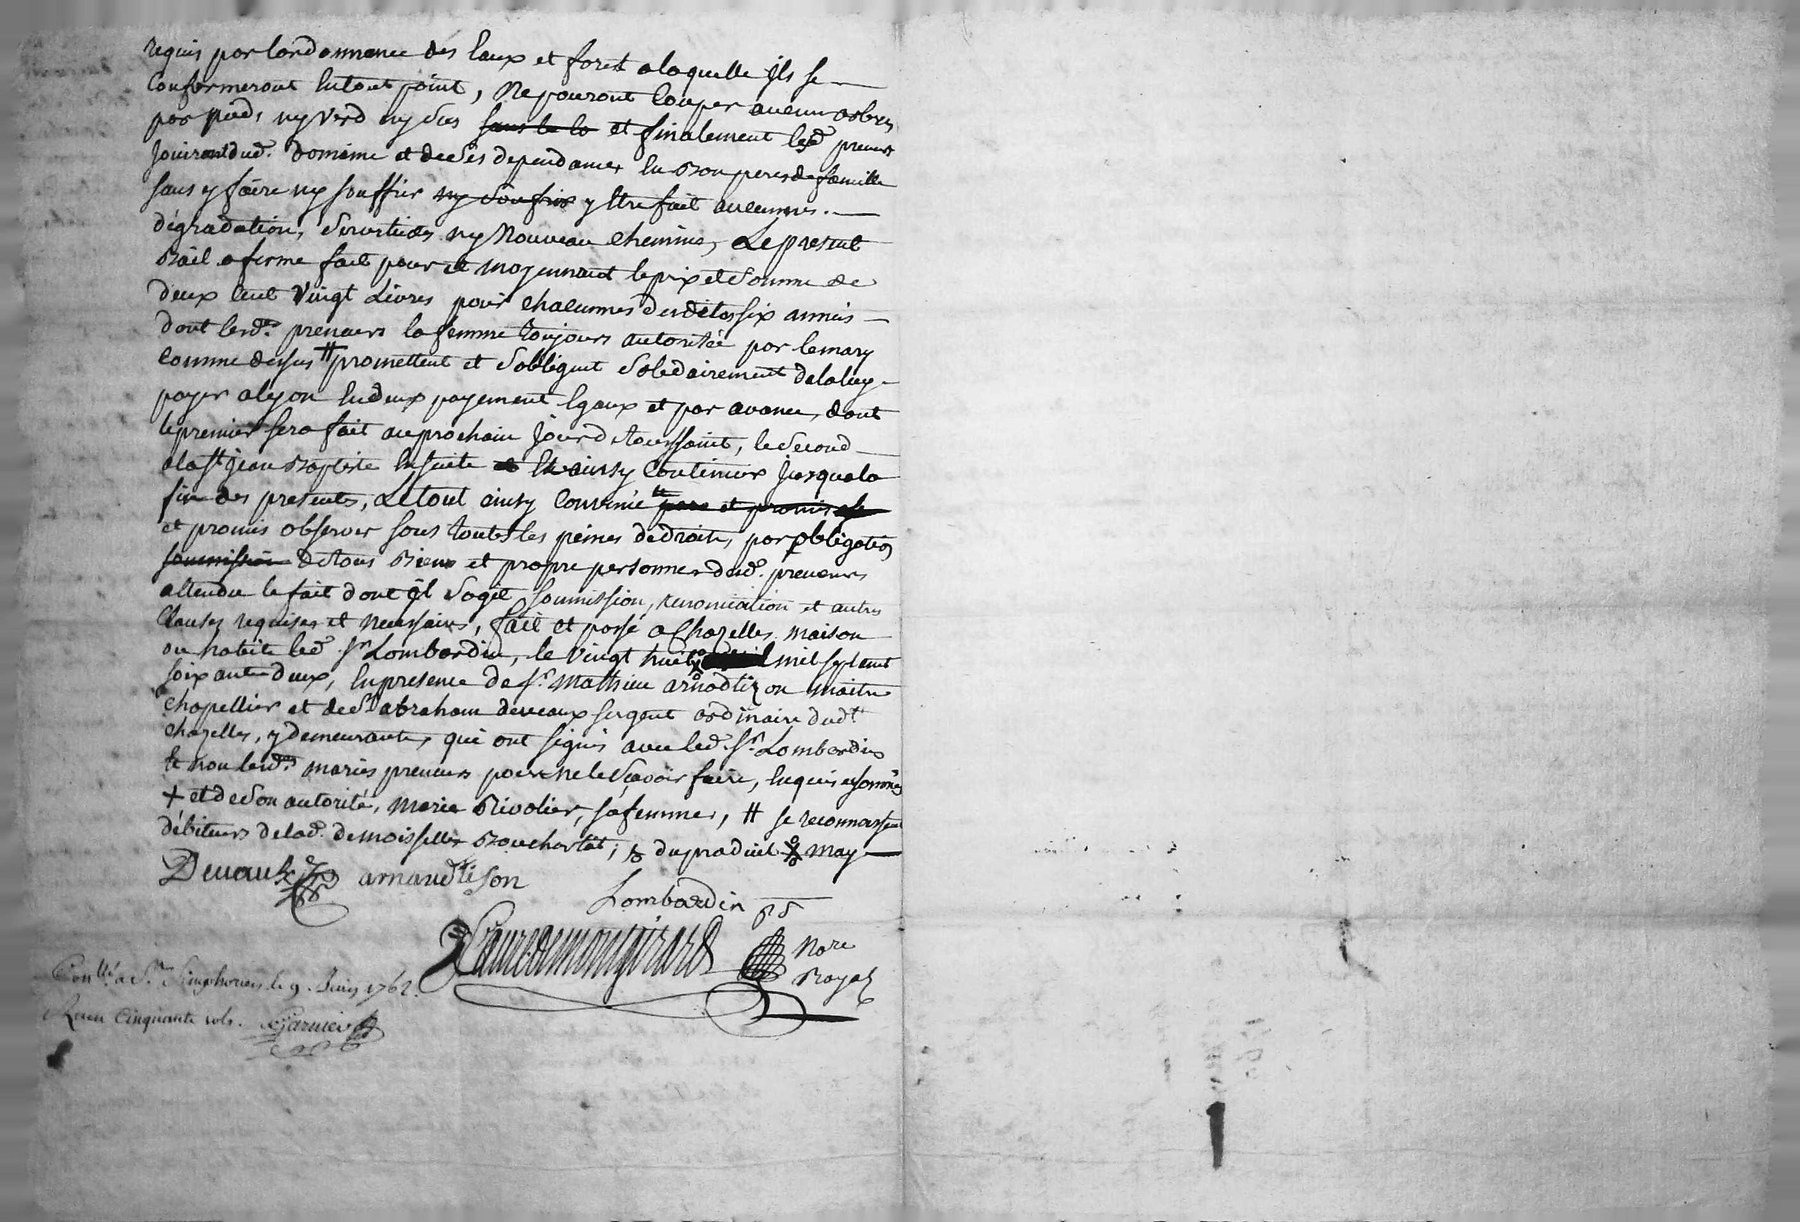 requis par lordonnance des Eaux et forest a laquelle ils se
Conformeront En tout point, Ne pouront Couper aucun arbres
par pied, ny verd ny secs sans le co et finalement lesd. preneurs
Jouiront dud. domeine et de ses dependances En Bon peres de famille
sans y faire ny souffrir ny soufrir y Etre fait aucunnes
dégradation, servitudes ny Nouveau Chemins, Le present
Bail a ferme fait pour et moyennant le prix et somme de
deux Cent Vingt Livres pour chacunnes desdittes six années
dont lesd. preneurs la femme toujours autorisée par le mary
Comme dessus # promettent et sobligent solidairement
payer a lyon En deux payement Egaux et par avance, dont
le premier sera fait au prochain Jour de toussaint, le second
a la st jean Baptiste En suite et Et ainsy Continuer Jusqua la
fin des presentes, Le tout ainsy Convenu et promis
et promis observer sous toutes les peines de droits, par obligation
soumission de tous Biens et propre personnes desd. preneurs
attendu le fait dont il sagit soumission, renonciation et autres
Clauses requises et necessaires, fait et passé a Chazelles maison
ou habite led. Sr Lombardin, le vingt huit mil sept cent
soixante deux, En presence de Sr. Mathieu arnaud tizon maitre
chapellier et de Sr abraham deveaux sergent ordinaire dud.
Chazelles, y demeurants, qui ont signés avec led. Sr. Lombardin
Et non lesd. mariés preneurs pour ne le scavoir faire, Enquis et sommés
+ et de son autorité, marie Rivolier, sa femme, # se reconnoissent
débiteurs de lad. demoiselle Bouchartat, du produit may
Devaux arnaud tison
Lombardin
faure de montgirard Nore
Royal
Conllé a St. Simphorien le 9. Juin 1762.
Recu Cinquante sols. Garnier